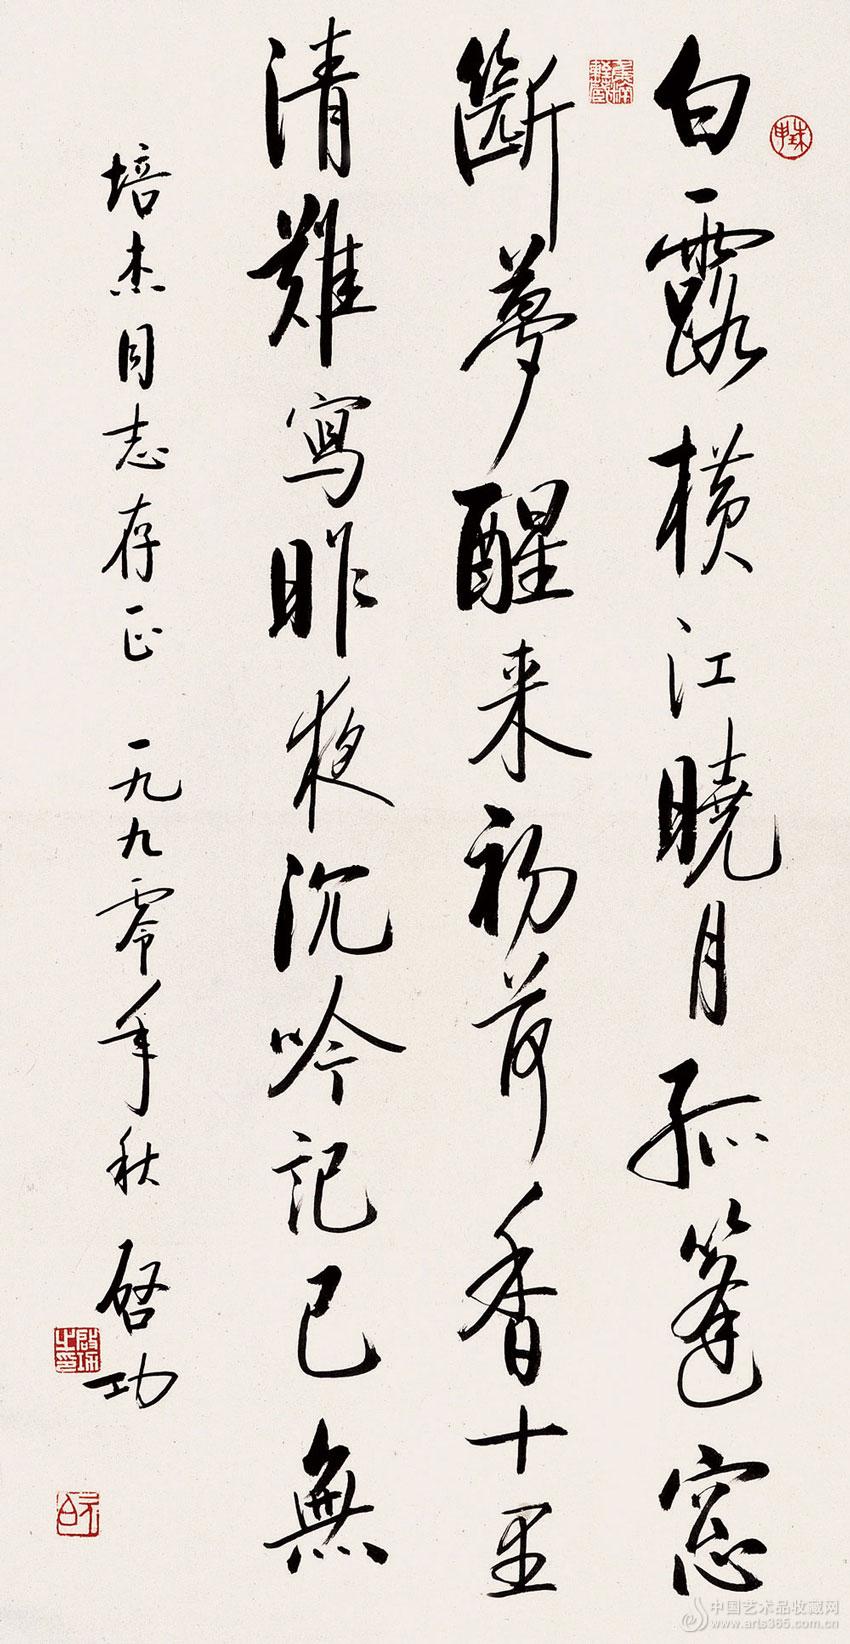 白露横江曉月孤篷窓
斷夢醒来初荷香十里
清難寫昨夜沉吟記已無
培杰同志存正 一九九零年秋 啓功
中国艺术品收藏网
www.arts365.com.cn